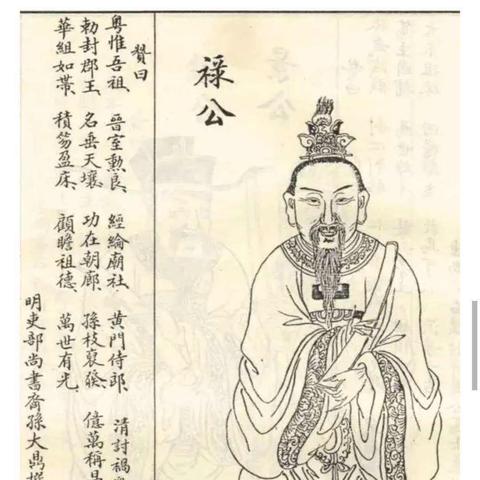 祿公
贊曰
粵惟吾祖、晉室勲良、經綸廟社、黃門侍郎、清討禍
勅封郡王、名垂天壤、功在朝廊、孫枝 億萬稱
華組如帶、積笏盈床、顧瞻祖德、萬世有光
明吏部尚書裔孫大鼎撰